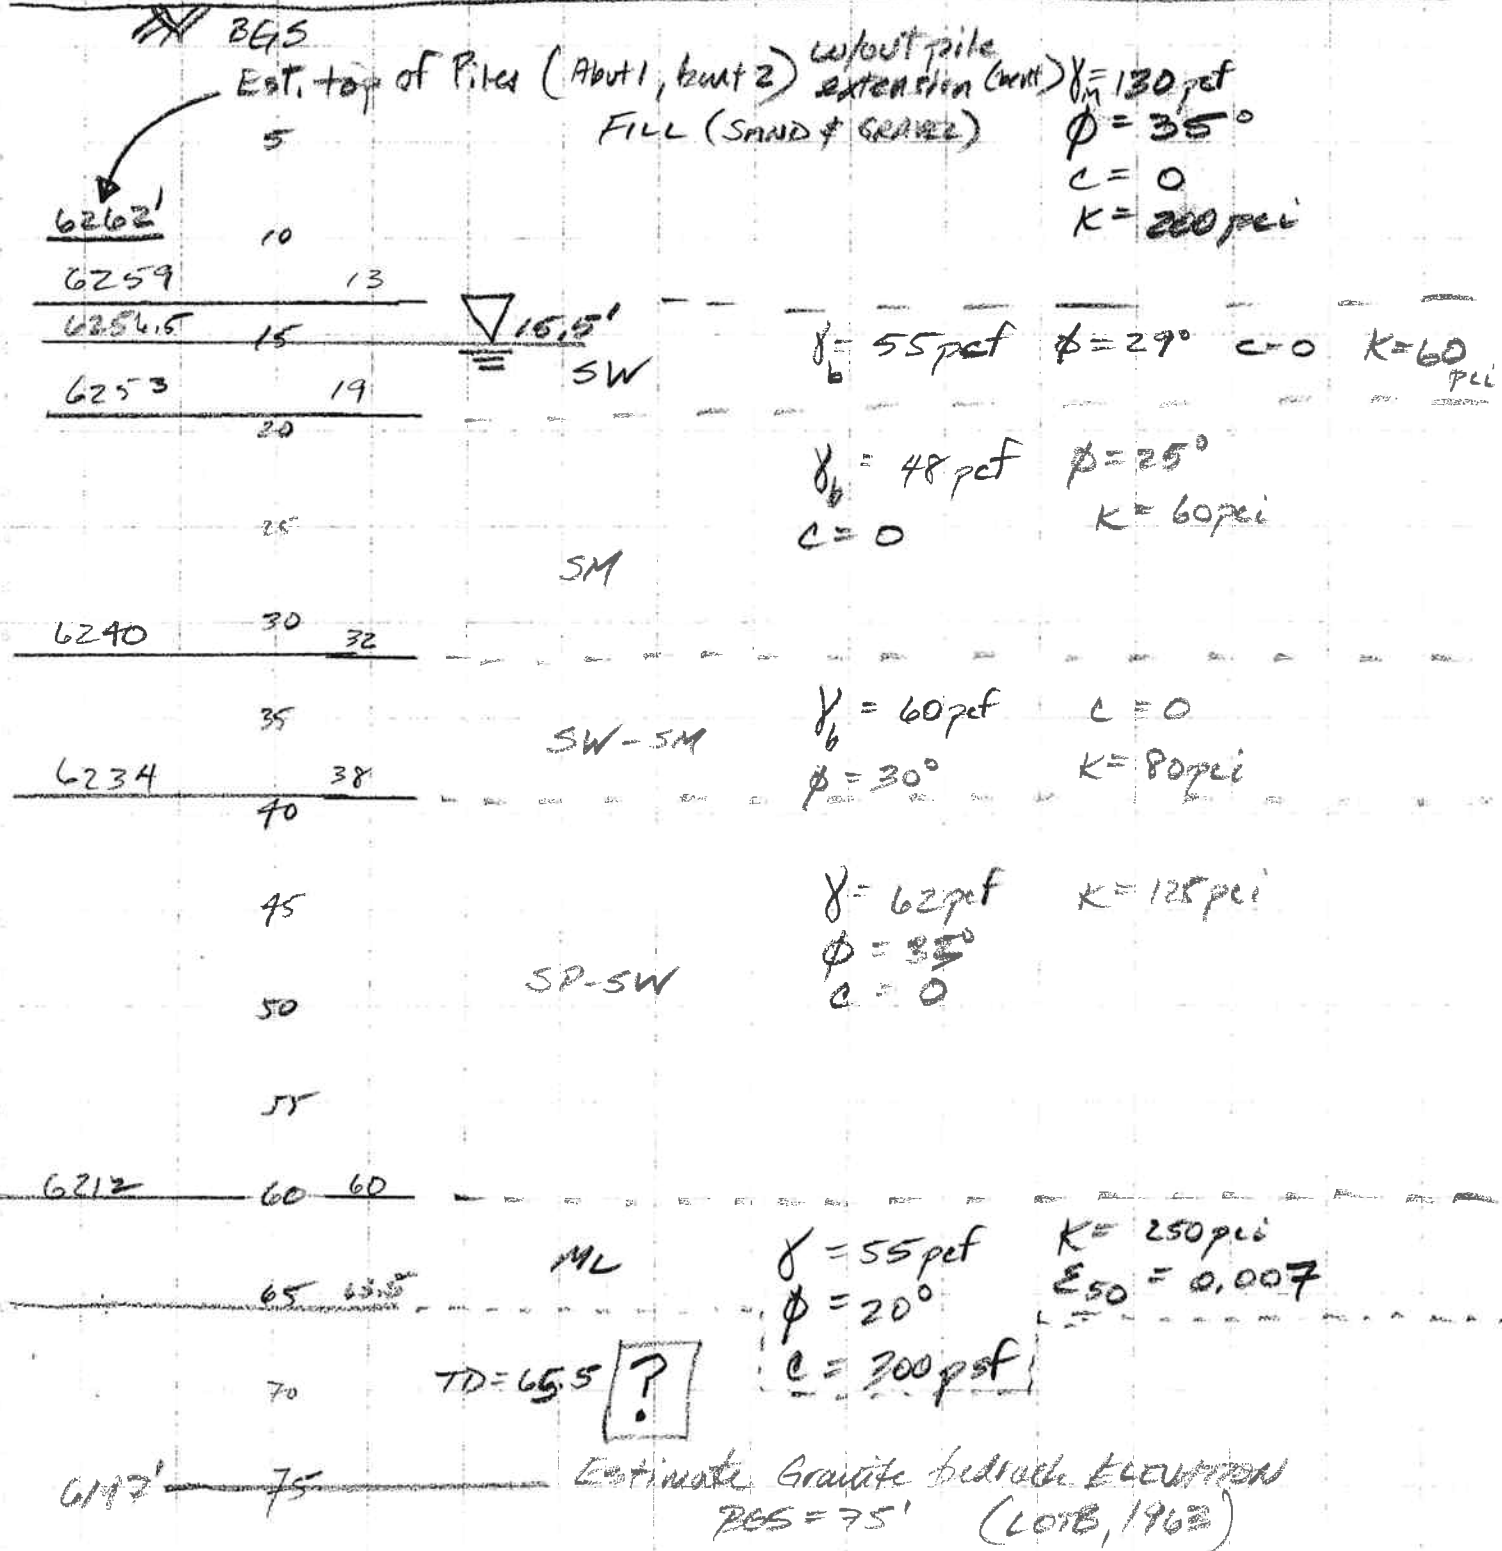 BGS
Est. top of Piles (Abut 1, bent 2) w/out pile
extension (bent) γm = 130 pcf
5 FILL (SAND & GRAVEL) ϕ = 35°
c = 0
6262' 10 K = 200 pci
6259 13
6256.5 15 15.5' γb = 55 pcf ϕ = 29° c = 0 K = 60 pci
SW
6253 19
20
γb = 48 pcf ϕ = 25°
25 c = 0 K = 60 pci
SM
6240 30 32
35 SW-SM γb = 60 pcf c = 0
6234 38 ϕ = 30° K = 80 pci
40
45 γ = 62 pcf K = 125 pci
ϕ = 35°
50 SP-SW c = 0
55
6212 60 60
ML γ = 55 pcf K = 250 pci
65 65.5 ϕ = 20° ε50 = 0.007
70 TD = 65.5 ? c = 300 psf
6197' 75 Estimate Granite bedrock ELEVATION
BGS = 75' (LOTB, 1963)